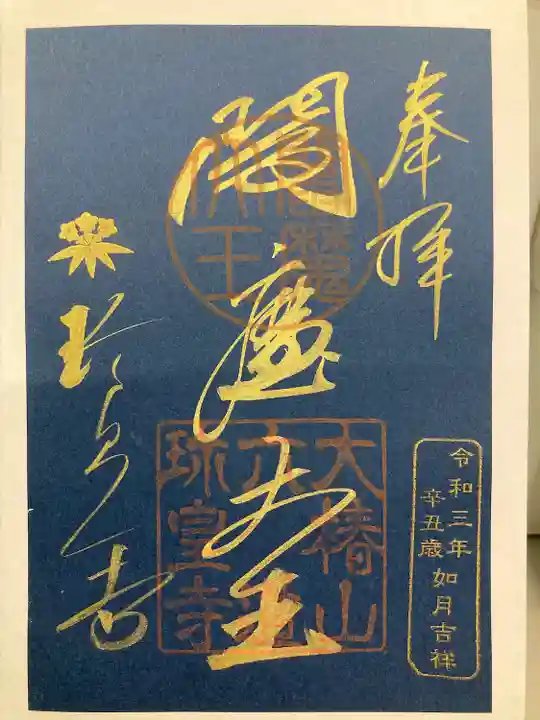 奉拝
令和三年
辛丑歳
如月吉祥
閻魔大王
大椿山
六道
珎皇寺
珎皇寺